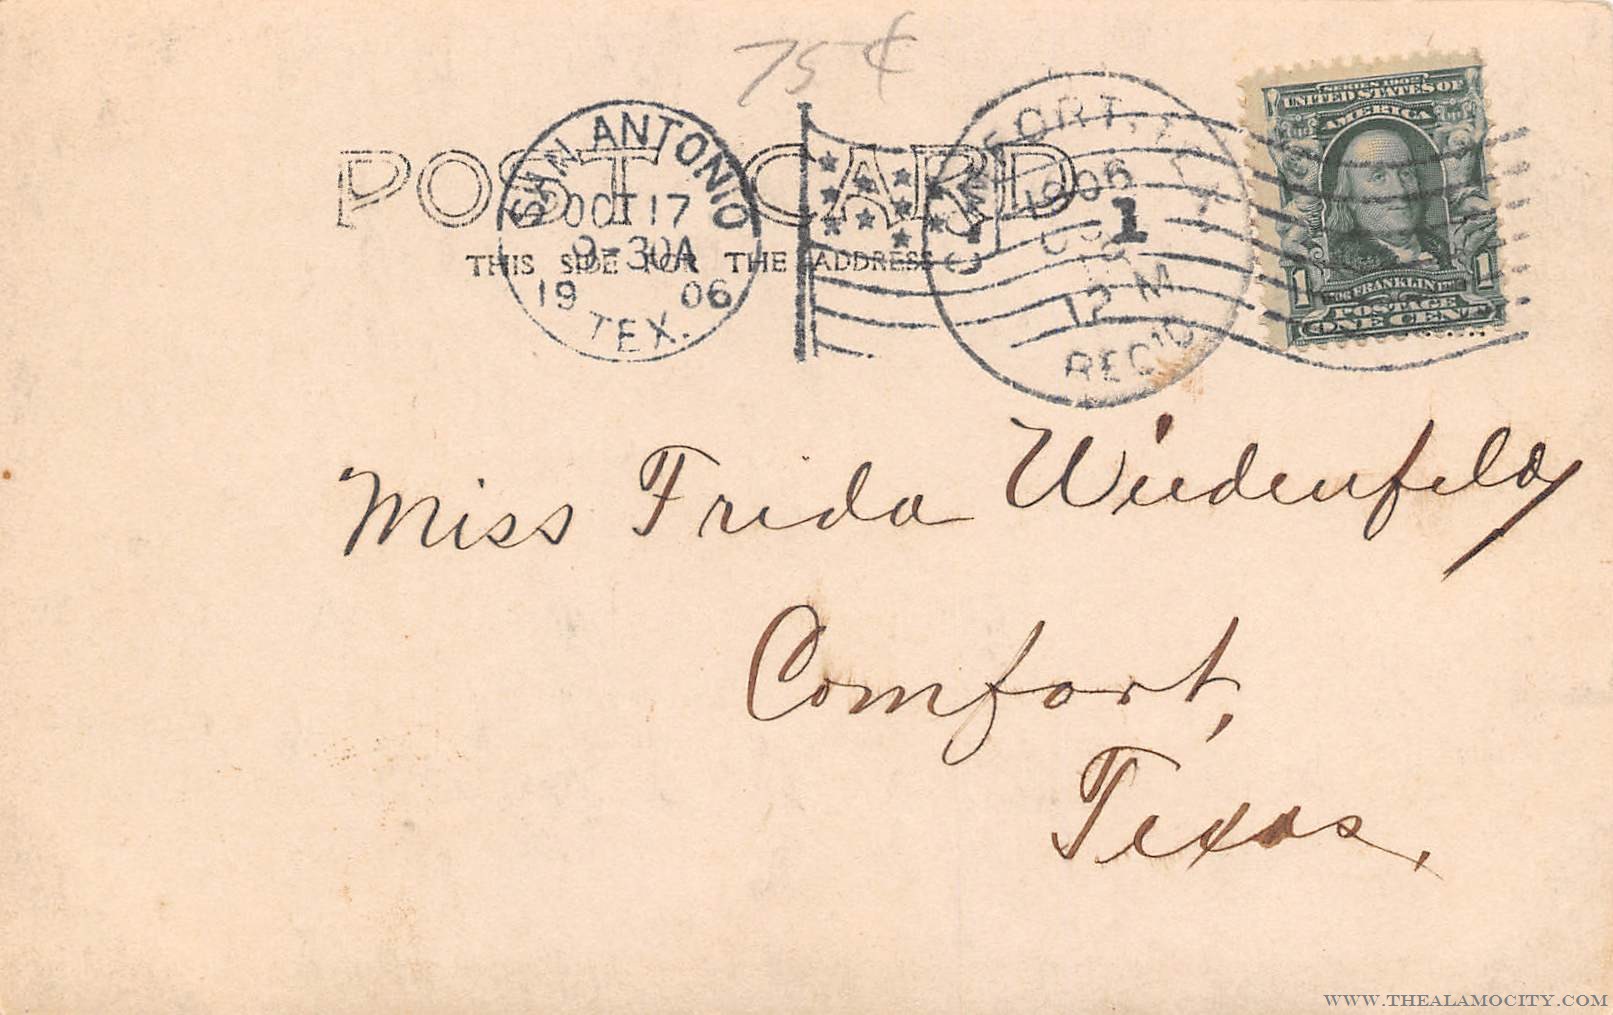 75¢
POST CARD
THIS SIDE FOR THE ADDRESS
SAN ANTONIO
OCT 17
-30A
19 06
TEX.
COMFORT, TEX
1906
1
12 M
REC'D
SERIES 1902
UNITED STATES OF
AMERICA
FRANKLIN
1 POSTAGE 1
ONE CENT
Miss Frida Wiedenfeld,
Comfort,
Texas.
WWW.THEALAMOCITY.COM